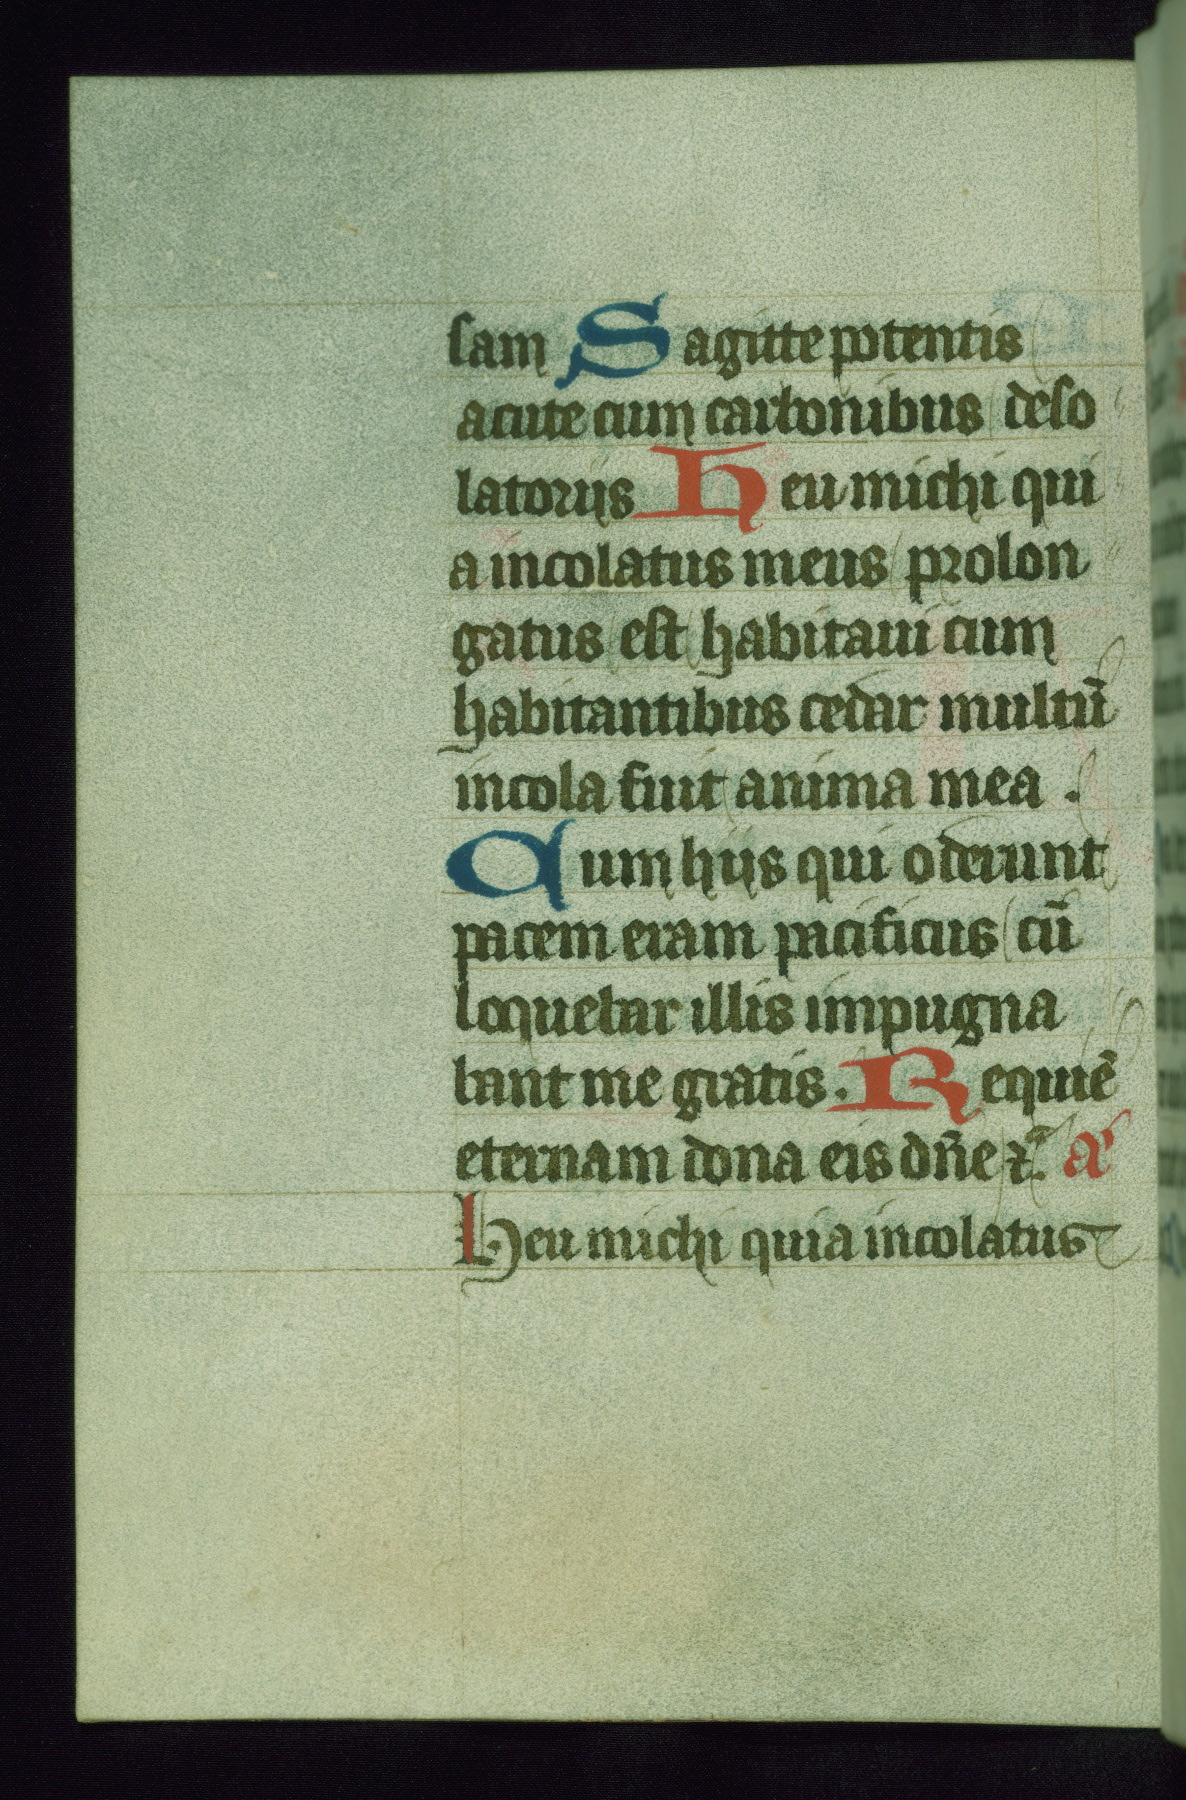 sam Sagitte potentis
acute cum carbonibus deso
latoriis Heu michi qui
a incolatus meus prolon
gatus est habitaui cum
habitantibus cedar multū
incola fuit anima mea .
Cum hijs qui oderunt
pacem eram pacificus cū
loquebar illis impugna
bant me gratis . Requiē
eternam dona eis dn̄e ⁊cͣ. a͛
Heu michi quia incolatus